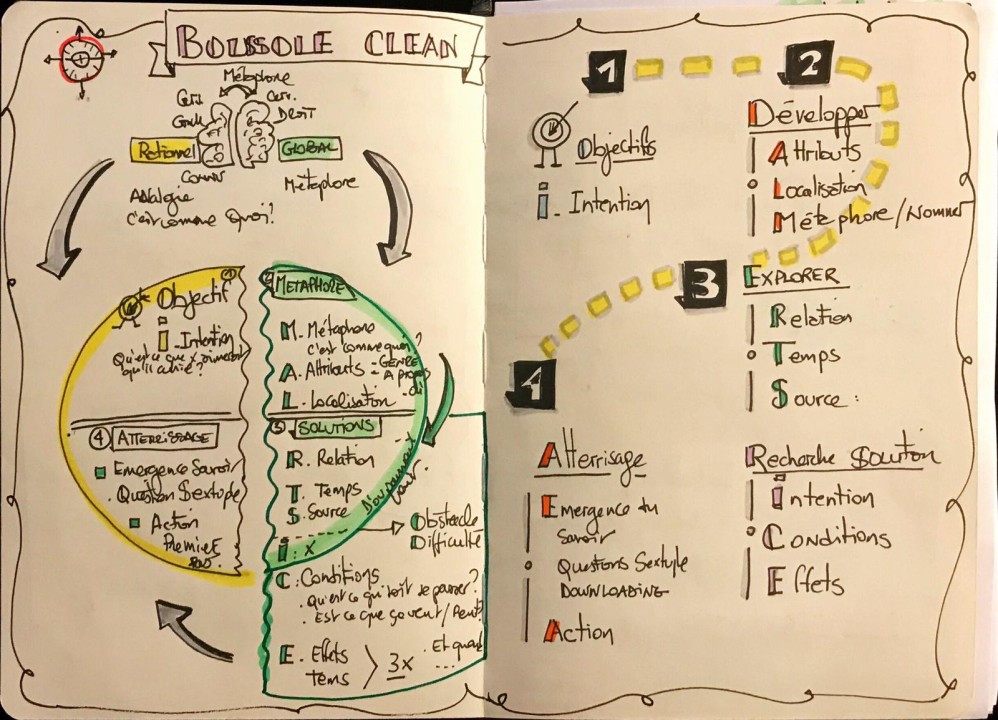 BOUSSOLE CLEAN
Métaphore
Cerv.
Gauche
Cerv.
DROIT
Rationnel
GLOBAL
Analogie
c'est comme Quoi?
Métaphore
①
Objectif
i. Intention
Qu'est ce que x aimerait
qu'il arrive?
② METAPHORE
M. Métaphore
c'est comme quoi?
A. Attributs - GENRE
A propos
L. Localisation - Où
③ SOLUTIONS
R. Relation
T. Temps
S. Source
D'où pourrait
i : x
Obstacle
Difficulté
C : Conditions
. Qu'est ce qui doit se passer?
. Est ce que ça veut / Peut?
E. Effets
tems
3x
. Et quand
....
④ ATTERRISSAGE
Emergence Savoir
. Question Sextuple
Action
Premier
Pas.
1
Objectifs
i. Intention
2
Développer
Attributs
Localisation
Métaphore / Nommer
3
EXPLORER
Relation
Temps
Source :
Recherche Solution
Intention
Conditions
Effets
4
Atterrisage
Emergence du
Savoir
Questions Sextuple
DOWNLOADING
Action